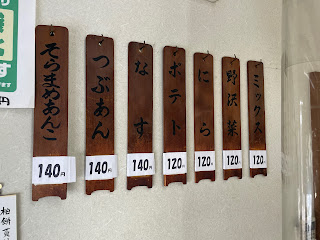 そらまめあんこ
140円
つぶあん
140円
なす
140円
ポテト
120円
にら
120円
野沢菜
120円
ミックス
120円
円
柏餅